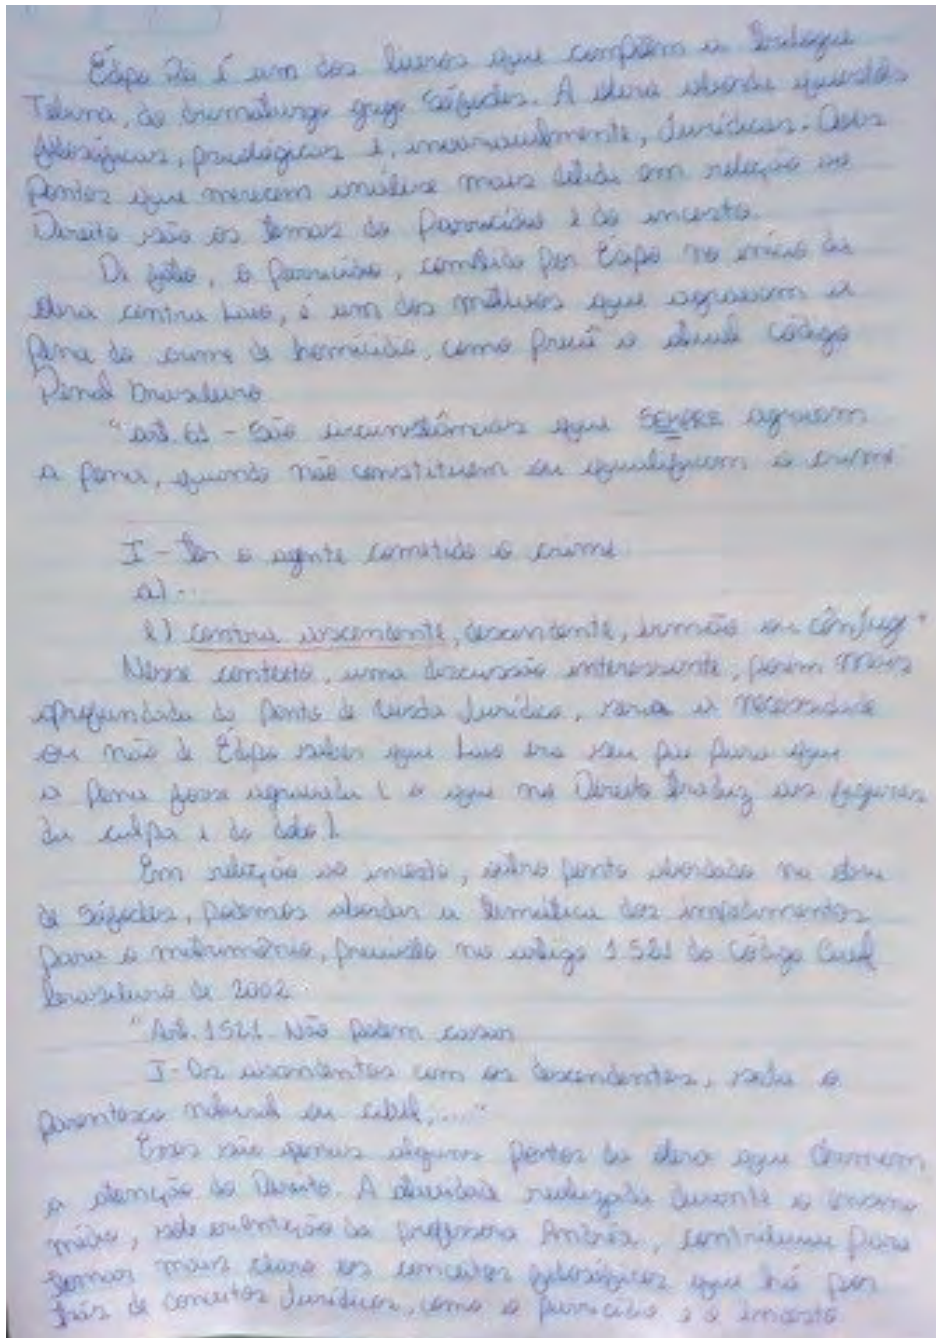 Édipo Rei é um dos livros que compõem a Trilogia
Tebana, do dramaturgo grego Sófocles. A obra aborda questões
filosóficas, psicológicas e, invariavelmente, Jurídicas. Dois
Pontos que merecem análise mais detida em relação ao
Direito são os temas do Parricídio e do incesto.
De fato, o Parricídio, cometido por Édipo no início da
obra contra Laio, é um dos motivos que agravam a
pena do crime de homicídio, como prevê o atual código
Penal brasileiro
"art. 61 - São circunstâncias que SEMPRE agravam
a pena, quando não constituem ou qualificam o crime
I - Ter o agente cometido o crime
a)...
e) contra ascendente, descendente, irmão ou cônjuge"
Nesse contexto, uma discussão interessante, porém mais
aprofundada do ponto de vista Jurídico, seria a necessidade
ou não de Édipo saber que Laio era seu pai para que
a pena fosse agravada (o que no Direito traduz as figuras
da culpa e do dolo).
Em relação ao incesto, outro ponto abordado na obra
de Sófocles, podemos abordar a temática dos impedimentos
para o matrimônio, previsto no artigo 1.521 do Código Civil
brasileiro de 2002.
"Art. 1521. Não podem casar
I - Os ascendentes com os descendentes, seja o
parentesco natural ou civil;...."
Esses são apenas alguns pontos da obra que chamam
a atenção do Direito. A atividade realizada durante o ensino
médio, sob orientação da professora Andréa, contribuiu para
tornar mais claro os conceitos filosóficos que há por
trás de conceitos Jurídicos, como o parricídio e o incesto.